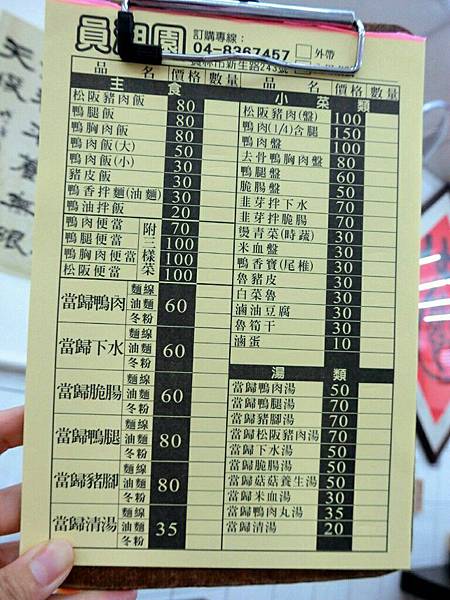 訂購專線：
04-8367457
外帶
員林市新生路243號
品名 價格 數量
主食
松阪豬肉飯 80
鴨腿飯 80
鴨胸肉飯 80
鴨肉飯(大) 50
鴨肉飯(小) 30
豬皮飯 30
鴨香拌麵(油麵) 30
鴨油拌飯 20
附三樣菜
鴨肉便當 70
鴨腿便當 100
鴨胸肉便當 100
松阪便當 100
當歸鴨肉 麵線 油麵 冬粉 60
當歸下水 麵線 油麵 冬粉 60
當歸脆腸 麵線 油麵 冬粉 60
當歸鴨腿 麵線 油麵 冬粉 80
當歸豬腳 麵線 油麵 冬粉 80
當歸清湯 麵線 油麵 冬粉 35
品名 價格 數量
小菜類
松阪豬肉(盤) 100
鴨肉(1/4)含腿 150
鴨肉盤 100
去骨鴨胸肉盤 80
鴨腿盤 60
脆腸盤 50
韭芽拌下水 70
韭芽拌脆腸 70
燙青菜(時蔬) 30
米血盤 30
鴨香寶(尾椎) 30
魯豬皮 30
白菜魯 30
滷油豆腐 30
魯筍干 30
滷蛋 10
湯類
當歸鴨肉湯 50
當歸鴨腿湯 70
當歸豬腳湯 70
當歸松阪豬肉湯 70
當歸下水湯 50
當歸脆腸湯 50
當歸菇菇養生湯 50
當歸米血湯 30
當歸鴨肉丸湯 35
當歸清湯 20